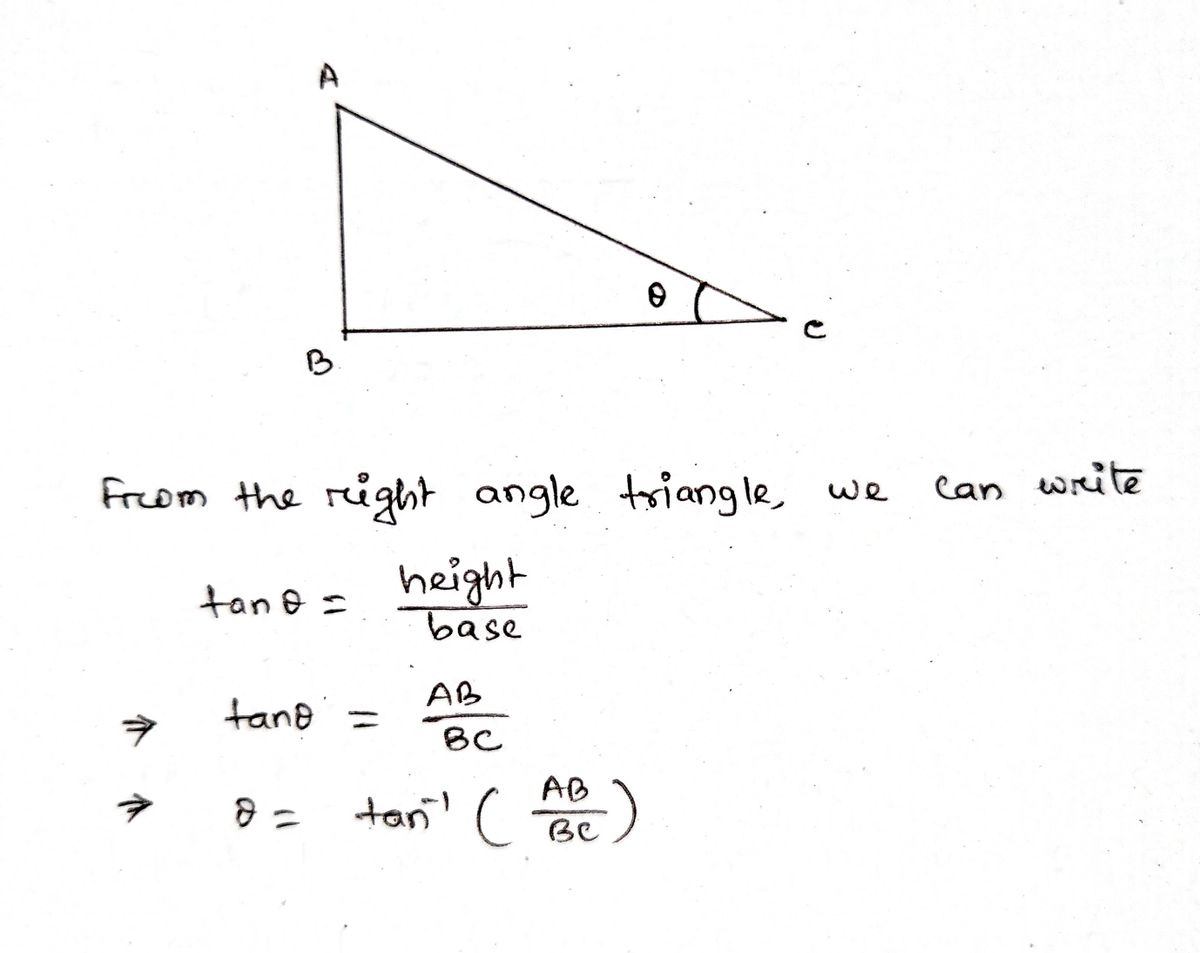 A
θ
C
B
From the right angle triangle, we can write
tan θ = height / base
⇒ tanθ = AB / BC
⇒ θ = tan⁻¹ ( AB / BC )